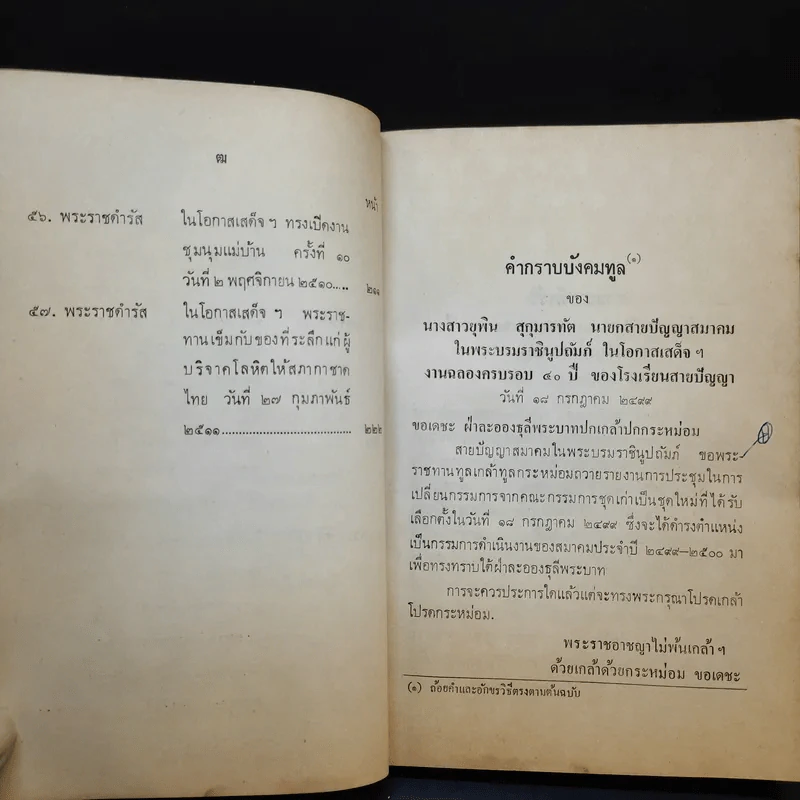 ฒ
หน้า
๕๖. พระราชดำรัส ในโอกาสเสด็จ ฯ ทรงเปิดงาน
ชุมนุมแม่บ้าน ครั้งที่ ๑๐
วันที่ ๒ พฤศจิกายน ๒๕๑๐.... ๒๑๑
๕๗. พระราชดำรัส ในโอกาสเสด็จ ฯ พระราช-
ทานเข็มกับของที่ระลึกแก่ผู้
บริจาคโลหิตให้สภากาชาด
ไทย วันที่ ๒๗ กุมภาพันธ์
๒๕๑๑..................................... ๒๒๒
คำกราบบังคมทูล(๑)
ของ
นางสาวยุพิน สุกุมารทัต นายกสายปัญญาสมาคม
ในพระบรมราชินูปถัมภ์ ในโอกาสเสด็จ ฯ
งานฉลองครบรอบ ๔๐ ปี ของโรงเรียนสายปัญญา
วันที่ ๑๘ กรกฎาคม ๒๔๙๙
ขอเดชะ ฝ่าละอองธุลีพระบาทปกเกล้าปกกระหม่อม
สายปัญญาสมาคมในพระบรมราชินูปถัมภ์ ขอพระ-
ราชทานทูลเกล้าทูลกระหม่อมถวายรายงานการประชุมในการ
เปลี่ยนกรรมการจากคณะกรรมการชุดเก่าเป็นชุดใหม่ที่ได้รับ
เลือกตั้งในวันที่ ๑๘ กรกฎาคม ๒๔๙๙ ซึ่งจะได้ดำรงตำแหน่ง
เป็นกรรมการดำเนินงานของสมาคมประจำปี ๒๔๙๙–๒๕๐๐ มา
เพื่อทรงทราบใต้ฝ่าละอองธุลีพระบาท
การจะควรประการใดแล้วแต่จะทรงพระกรุณาโปรดเกล้า
โปรดกระหม่อม.
พระราชอาชญาไม่พ้นเกล้า ฯ
ด้วยเกล้าด้วยกระหม่อม ขอเดชะ
(๑) ถ้อยคำและอักขรวิธีตรงตามต้นฉบับ